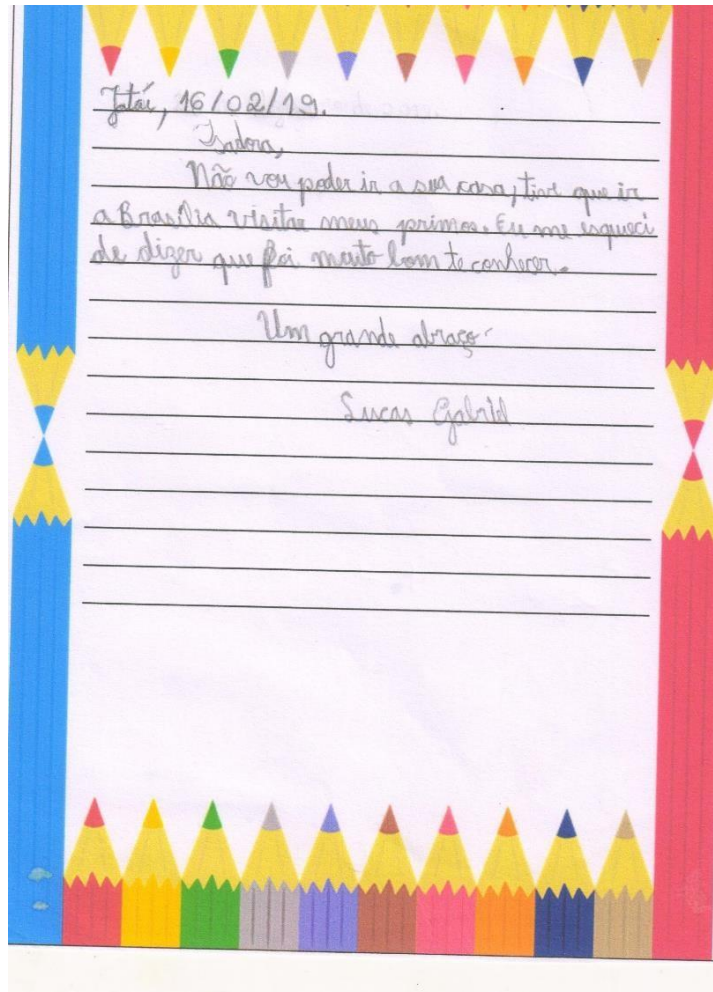 Jataí, 16/02/19.
Isadora,
Não vou poder ir a sua casa, tive que ir
a Brasília visitar meus primos. Eu me esqueci
de dizer que foi muito bom te conhecer.
Um grande abraço
Lucas Gabriel